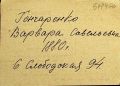 Гончаренко
Варвара Савельевна
1880 г.
Б. Слободская 94.